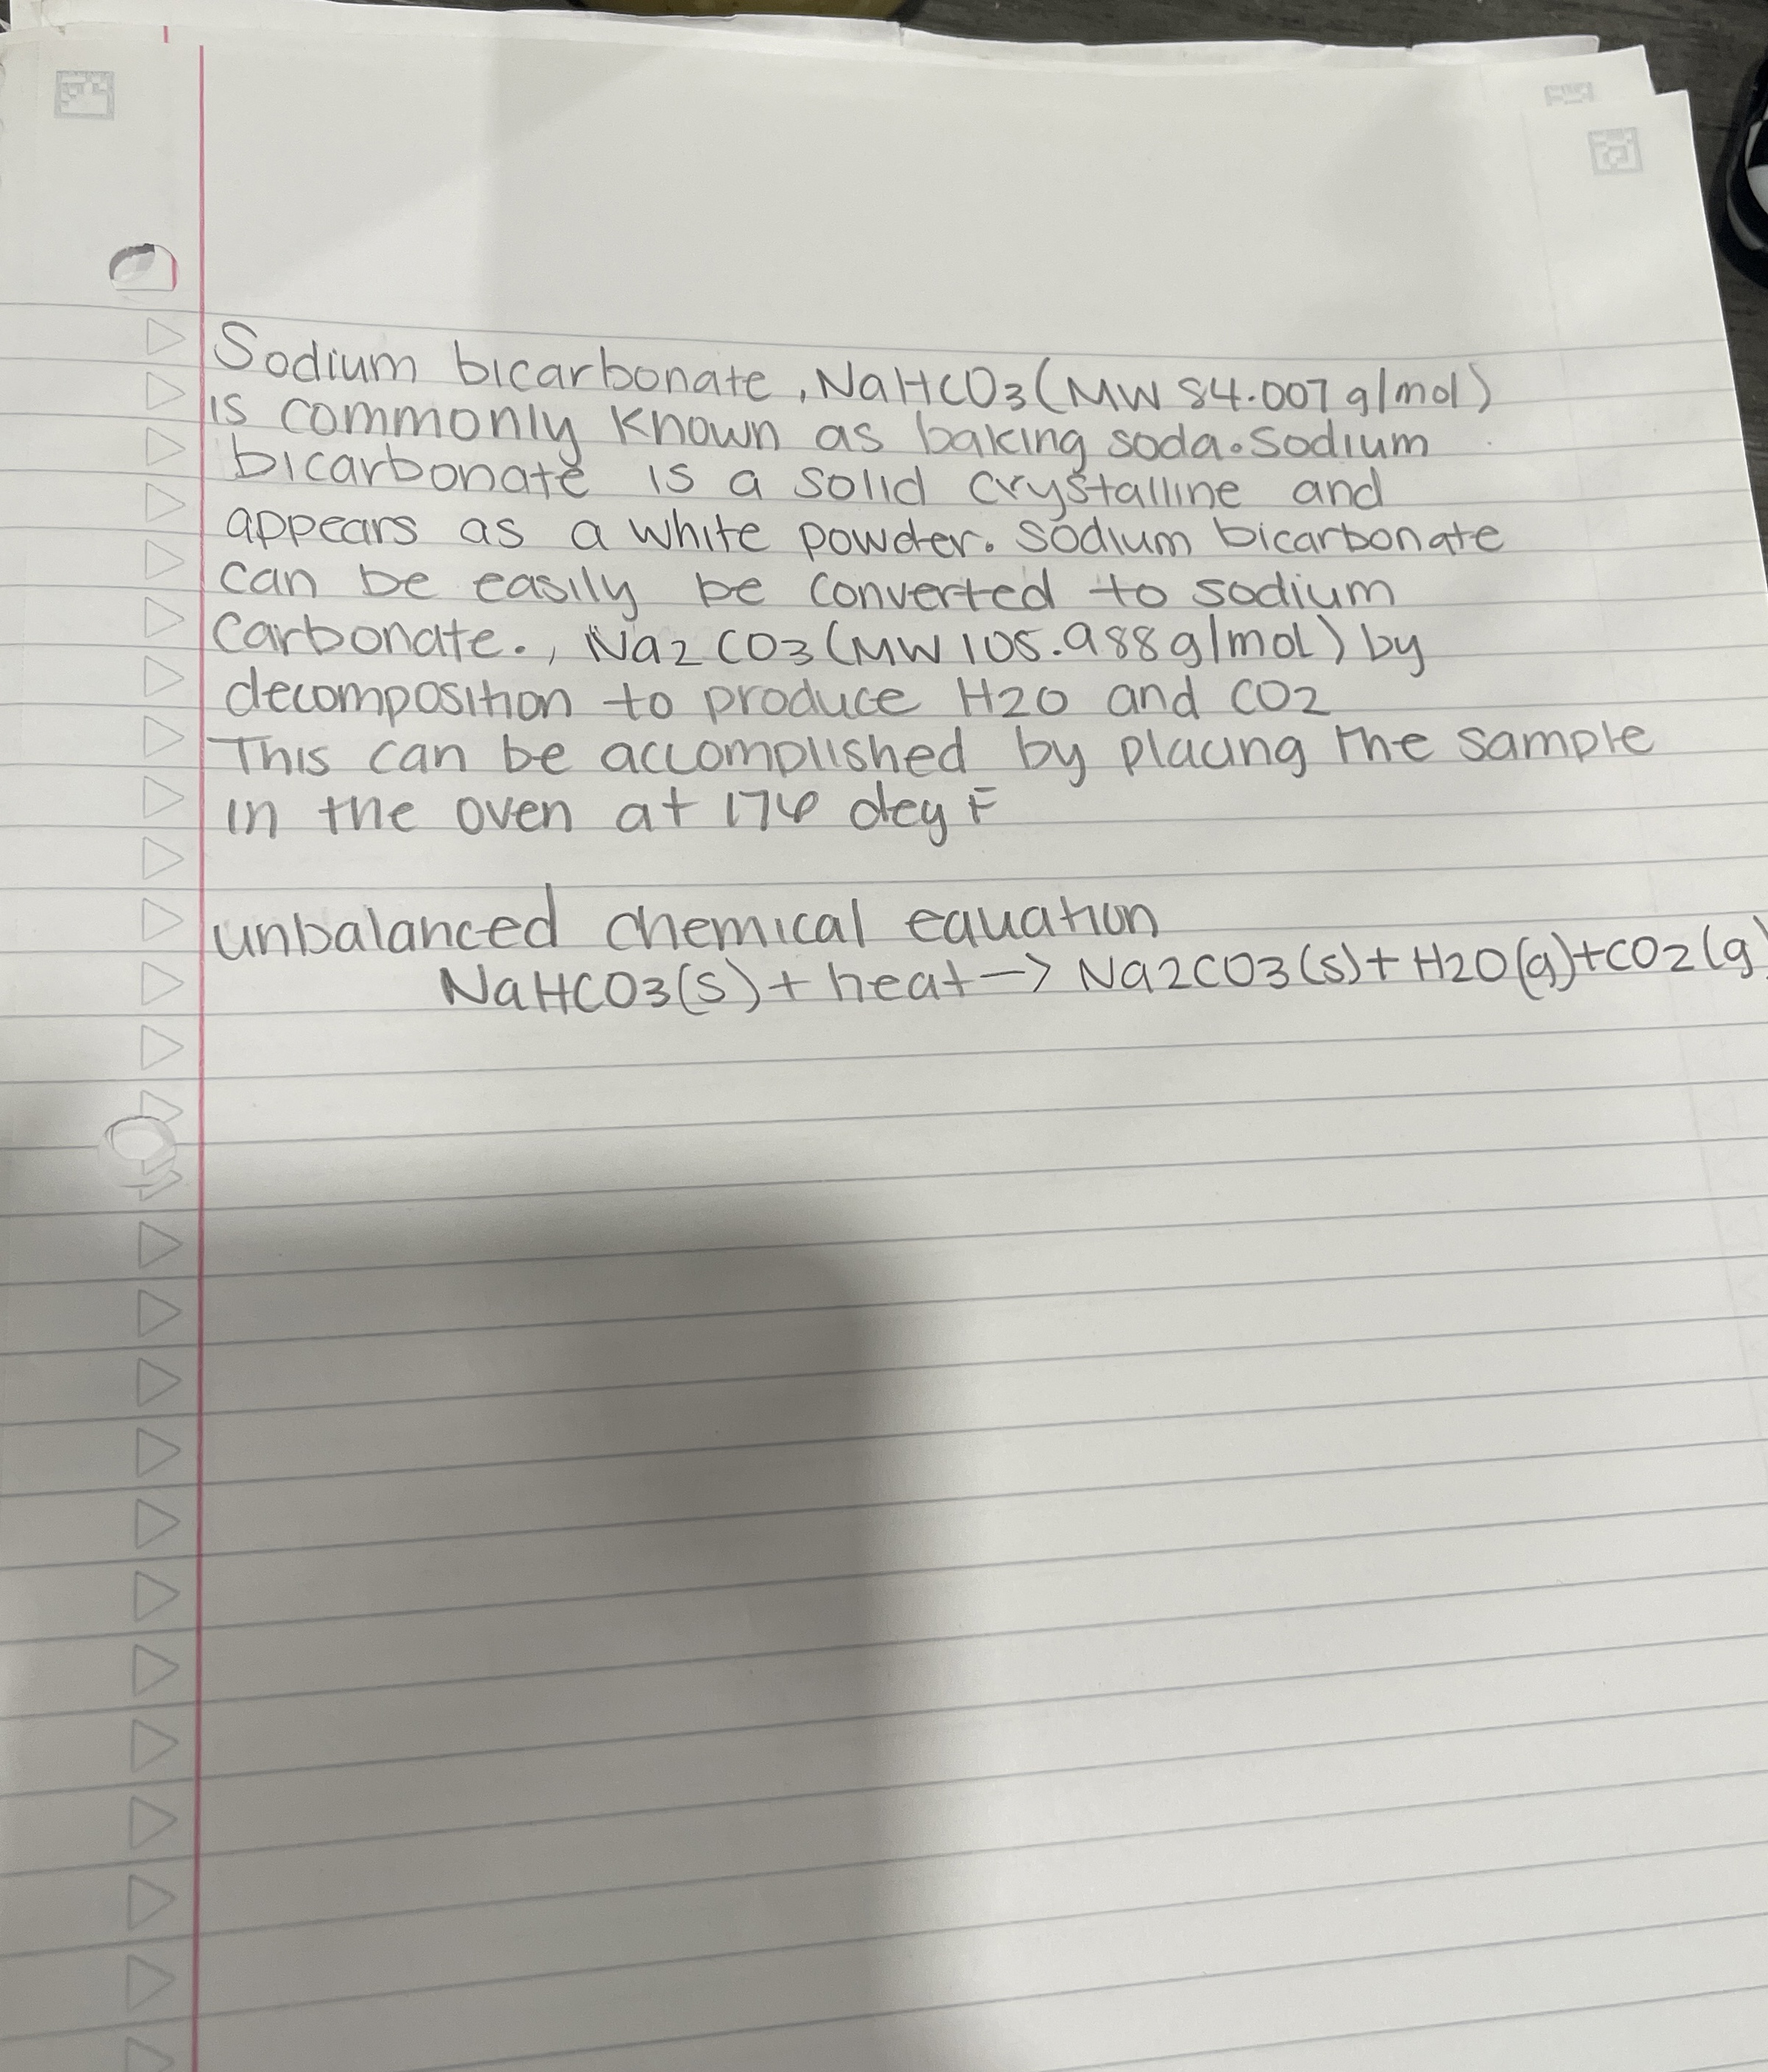 Sodium bicarbonate, NaHCO3(MW 84.007 g/mol)
is commonly known as baking soda. Sodium
bicarbonate is a solid crystalline and
appears as a white powder. Sodium bicarbonate
can be easily be converted to sodium
carbonate., Na2 CO3 (MW 105.988g/mol) by
decomposition to produce H2O and CO2
This can be accomplished by placing the sample
in the oven at deg F
unbalanced chemical equation
NaHCO3(s) + heat -> Na2CO3(s)+H2O(g)+CO2(g)